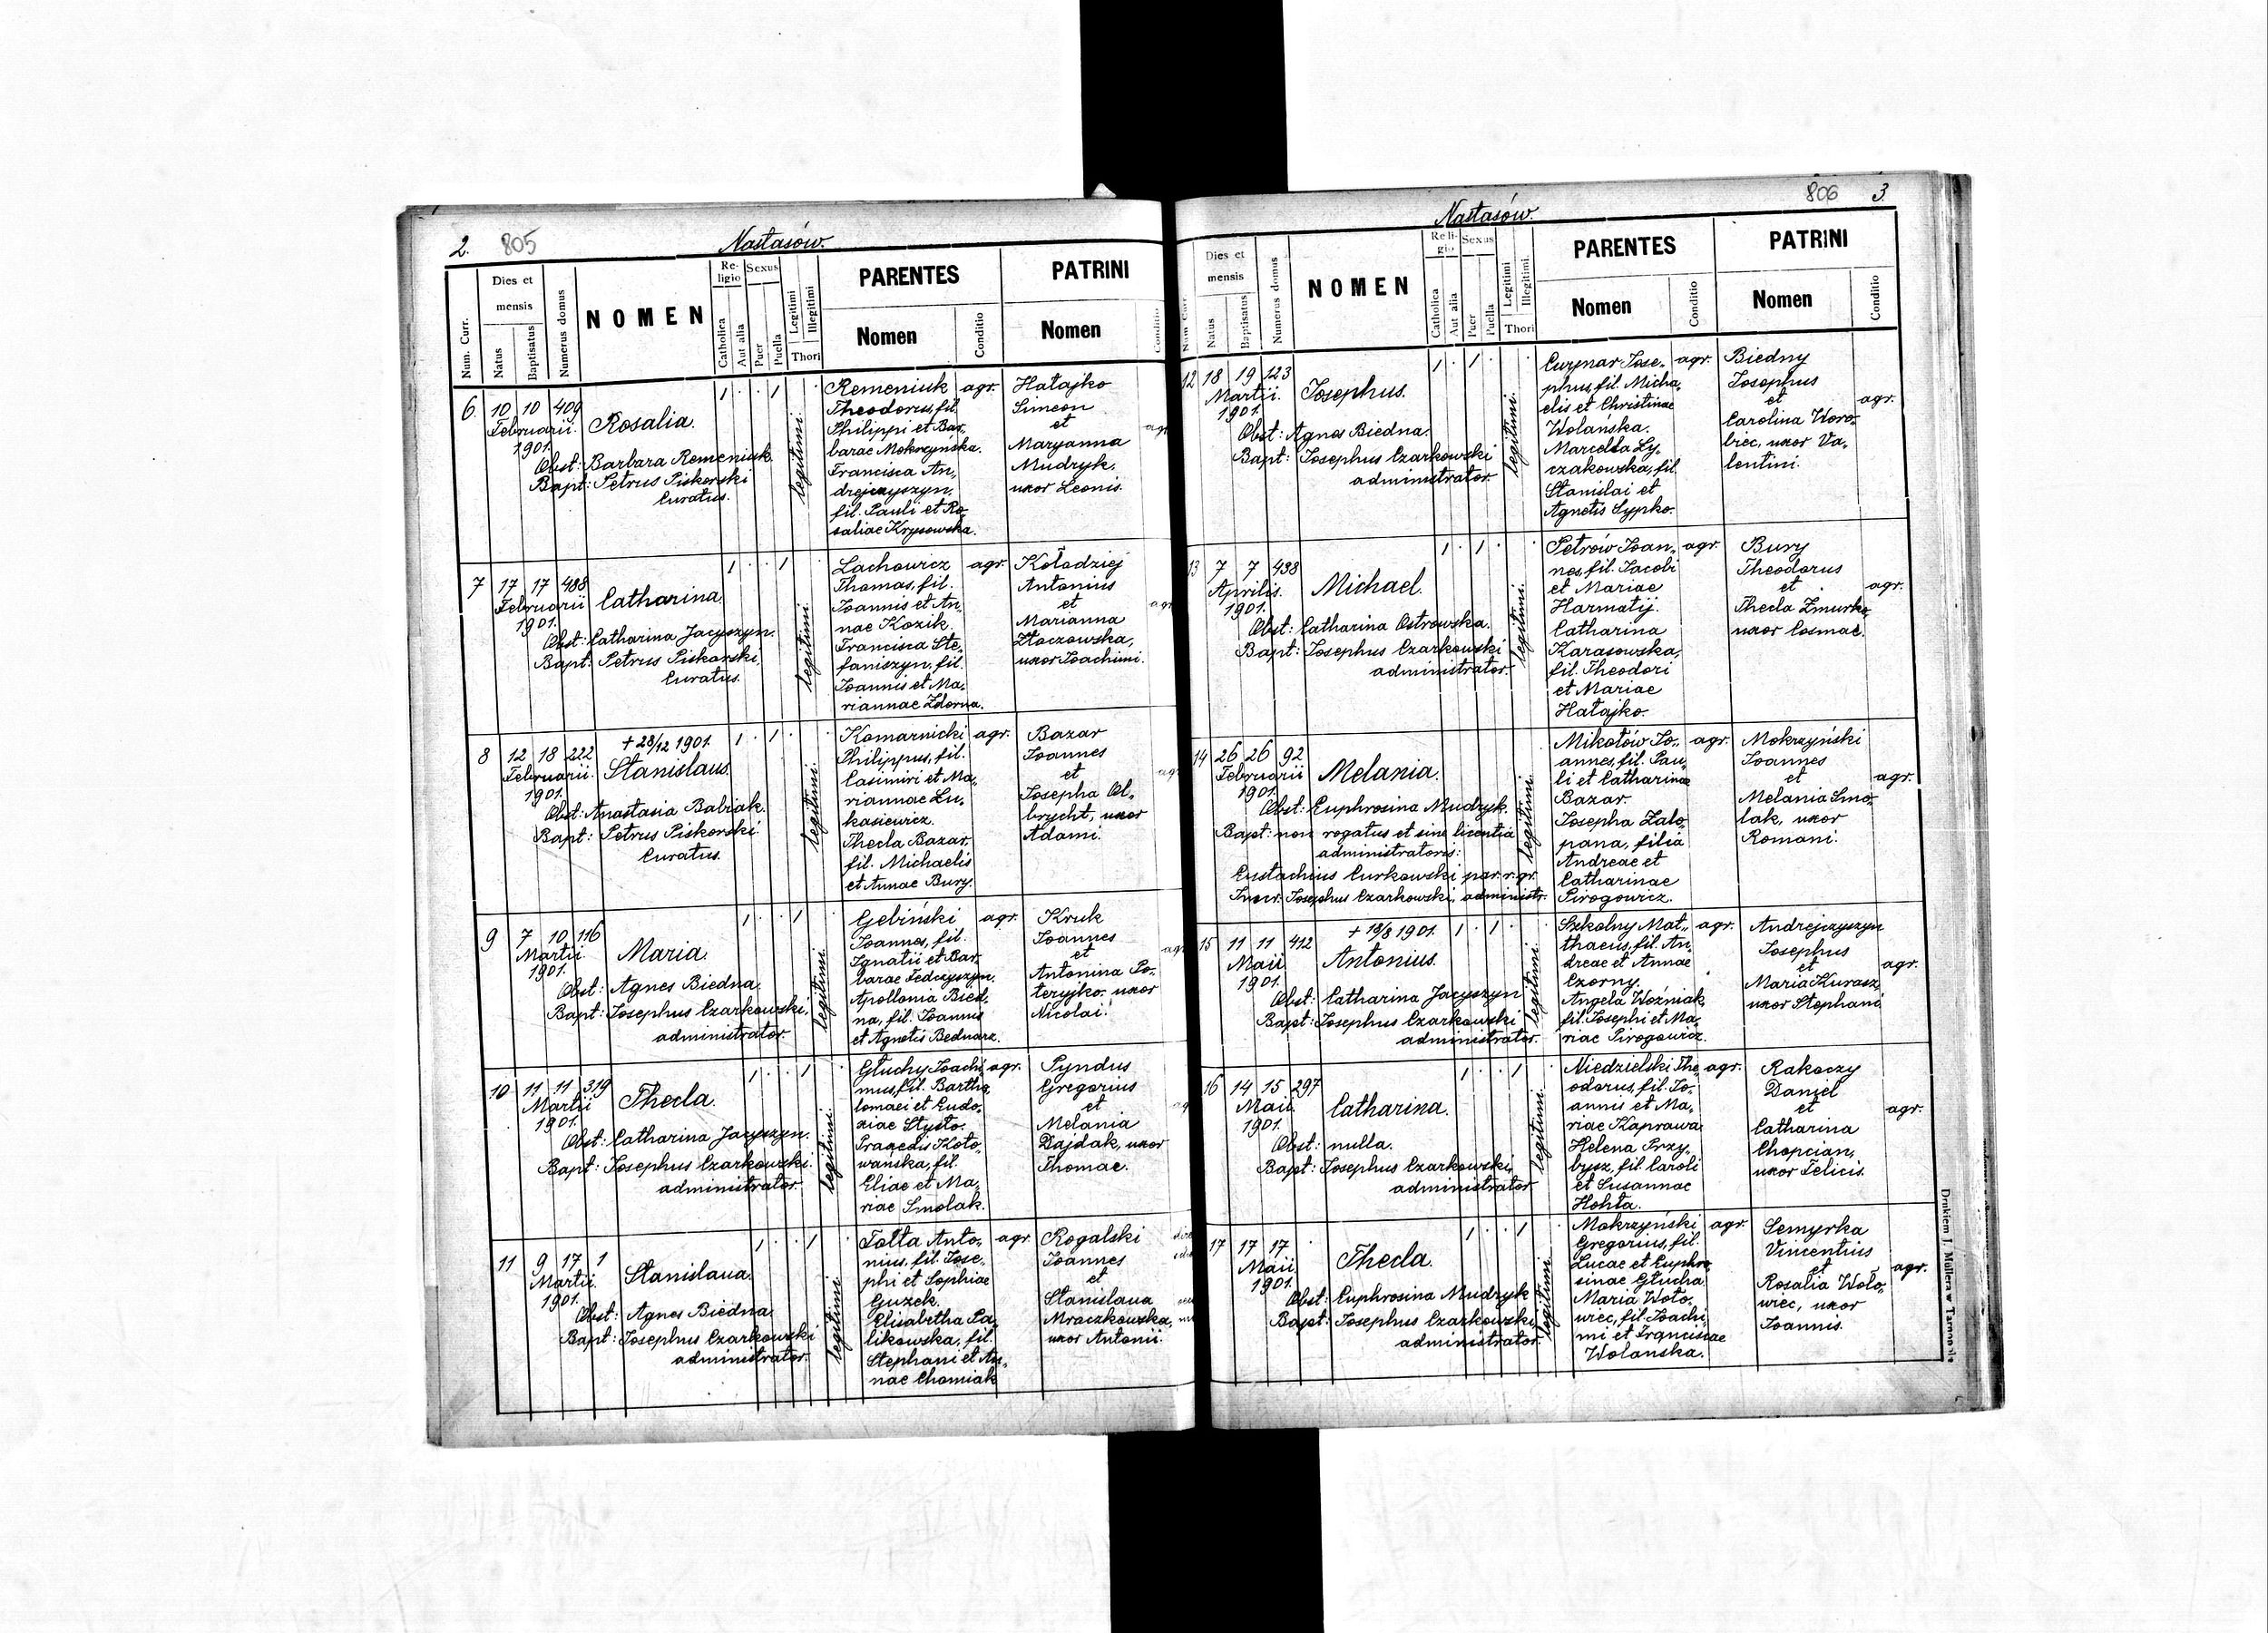 2. 805 Nastasów.
Num. Curr.
Dies et mensis
Natus
Baptisatus
Numerus domus
NOMEN
Religio
Catholica
Aut alia
Sexus
Puer
Puella
Legitimi
Illegitimi
Thori
PARENTES
Nomen
Conditio
PATRINI
Nomen
Conditio
6. 10 10 409
Februarii.
1901.
Rosalia.
Obst: Barbara Remeniuk.
Bapt: Petrus Piskorski
Curatus.
1 . . 1 .
legitimi.
Remeniuk agr.
Theodorus, fil.
Philippi et Bar„
barae Mokrzyńska.
Francisca An„
drejczyszyn,
fil. Pauli et Ro„
saliae Krysowska.
Hałajko
Simeon
et
Maryanna
Mudryk,
uxor Leonis.
7 17 17 488
Februarii
1901.
Catharina.
Obst: Catharina Jacyszyn.
Bapt: Petrus Piskorski,
Curatus.
1 . . 1 .
legitimi.
Lachowicz agr.
Thomas, fil.
Joannis et An„
nae Kozik.
Francisca Ste„
faniszyn, fil.
Joannis et Ma„
riannae Zdorna.
Kołodziej
Antonius
et
Marianna
Złoczowska,
uxor Joachimi.
8 12 18 222
Februarii.
1901.
+ 28/12 1901.
Stanislaus.
Obst: Anastasia Babiak.
Bapt: Petrus Piskorski
Curatus.
1 . 1 . .
legitimi.
Komarnicki agr.
Philippus, fil.
Casimiri et Ma„
riannae Lu„
kasiewicz.
Thecla Bazar,
fil. Michaelis
et Annae Bury.
Bazar
Joannes
et
Josepha Ol„
brycht, uxor
Adami.
9 7 10 116
Martii
1901.
Maria.
Obst: Agnes Biedna.
Bapt: Josephus Czarkowski,
administrator.
1 . . 1 .
legitimi.
Gebiński agr.
Joannes, fil.
Ignatii et Bar„
barae Fedczyszyn.
Apollonia Bied„
na, fil. Joannis
et Agnetis Bednarz.
Kruk
Joannes
et
Antonina Po„
teryjko, uxor
Nicolai.
10 11 11 319
Martii
1901.
Thecla.
Obst: Catharina Jacyszyn.
Bapt: Josephus Czarkowski.
administrator.
1 . . 1 .
legitimi.
Głuchy Joachi„ agr.
mus, fil. Bartho„
lomaei et Eudo„
xiae Stysło.
Praxedis Koto„
wańska, fil.
Eliae et Ma„
riae Smolak.
Pyndus
Gregorius
et
Melania
Dajdak, uxor
Thomae.
11 9 17 1
Martii.
1901.
Stanislaua.
Obst: Agnes Biedna.
Bapt: Josephus Czarkowski
administrator.
1 . . 1 .
legitimi.
Folta Anto„ agr.
nius, fil. Jose„
phi et Sophiae
Guzek.
Elisabetha Pa„
likowska, fil.
Stephani et An„
nae Chomiak
Rogalski
Joannes
et
Stanislaua
Mraczkowska,
uxor Antonii.
Nastasów. 806 3.
Dies et mensis
Natus
Baptisatus
Numerus domus
NOMEN
Religio
Catholica
Aut alia
Sexus
Puer
Puella
Legitimi
Illegitimi.
Thori
PARENTES
Nomen
Conditio
PATRINI
Nomen
Conditio
12 18 19 123
Martii.
1901.
Josephus.
Obst: Agnes Biedna.
Bapt: Josephus Czarkowski
administrator.
1 . 1 . .
legitimi.
Curynar Jose„ agr.
phus, fil. Micha„
elis et Christinae
Wolańska.
Marcella Ly„
czakowska, fil.
Stanislai et
Agnetis Sypko.
Biedny
Josephus
et
Carolina Woro„
biec, uxor Va„
lentini.
agr.
13 7 7 438
Aprilis.
1901.
Michael.
Obst: Catharina Ostrowska.
Bapt: Josephus Czarkowski
administrator.
1 . 1 . .
legitimi.
Petrów Joan„ agr.
nes, fil. Jacobi
et Mariae
Harmatij.
Catharina
Karasowska,
fil. Theodori
et Mariae
Hałajko.
Bury
Theodorus
et
Thecla Żmurko,
uxor Cosmae.
agr.
14 26 26 92
Februarii
1901.
Melania.
Obst: Euphrosina Mudryk.
Bapt: non rogatus et sine licentia
administratoris:
Eustachius Curkowski par. r. gr.
Inscr. Josephus Czarkowski, administr.
legitimi.
Mikołów Jo„ agr.
annes, fil. Pau„
li et Catharinae
Bazar.
Josepha Zało„
pana, filia
Andreae et
Catharinae
Pirogowicz.
Mokrzyński
Joannes
et
Melania Smo„
lak, uxor
Romani.
agr.
15 11 11 412
Maii
1901.
+ 18/8 1901.
Antonius.
Obst: Catharina Jacyszyn
Bapt: Josephus Czarkowski
administrator.
1 . 1 . .
legitimi.
Szkolny Mat„ agr.
thaeus, fil. An„
dreae et Annae
Czorny.
Angela Woźniak,
fil. Josephi et Ma„
riae Pirogowicz.
Andrejczyszyn
Josephus
et
Maria Kurasz,
uxor Stephani
agr.
16 14 15 297
Maii.
1901.
Catharina.
Obst: nulla.
Bapt: Josephus Czarkowski,
administrator
1 . . 1 .
legitimi.
Niedzielski The„ agr.
odorus, fil. Jo„
annis et Ma„
riae Kaprawa.
Helena Przy„
bysz, fil. Caroli
et Susannae
Hohta.
Rakoczy
Daniel
et
Catharina
Chopcian,
uxor Felicis.
agr.
17 17 17 .
Maii
1901.
Thecla.
Obst: Euphrosina Mudryk
Bapt: Josephus Czarkowski,
administrator.
1 . . 1 .
legitimi.
Mokrzyński agr.
Gregorius, fil.
Lucae et Euphro„
sinae Głucha.
Maria Woło„
wiec, fil. Joachi„
mi et Franciscae
Wolanska.
Semyrka
Vincentius
et
Rosalia Woło„
wiec, uxor
Joannis.
agr.
Drukiem J. Müllera w Tarnopolu